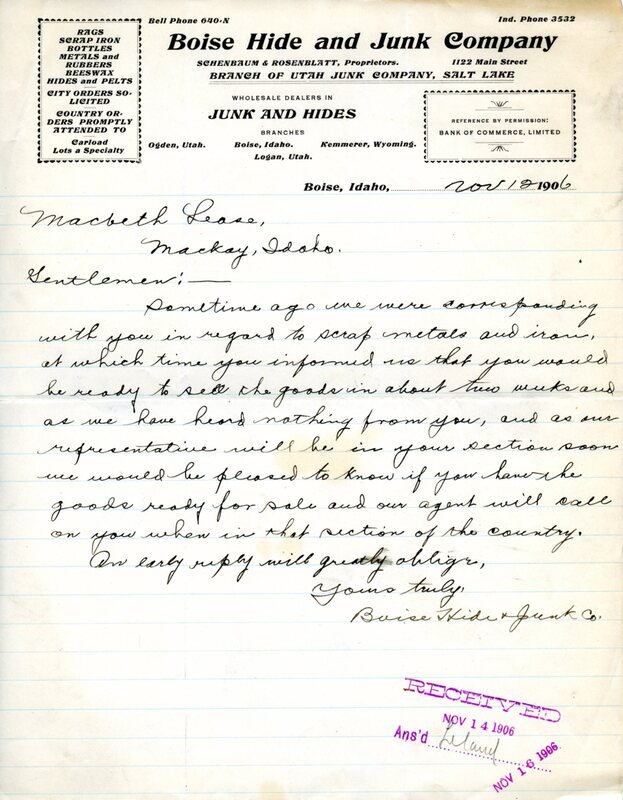 Bell Phone 640-N
Ind. Phone 3532
RAGS
SCRAP IRON
BOTTLES
METALS and
RUBBERS
BEESWAX
HIDES and PELTS
CITY ORDERS SO-
LICITED
COUNTRY OR-
DERS PROMPTLY
ATTENDED TO
Carload
Lots a Specialty
Boise Hide and Junk Company
SCHENBAUM & ROSENBLATT, Proprietors. 1122 Main Street
BRANCH OF UTAH JUNK COMPANY, SALT LAKE
WHOLESALE DEALERS IN
JUNK AND HIDES
BRANCHES
Ogden, Utah. Boise, Idaho. Kemmerer, Wyoming.
Logan, Utah.
REFERENCE BY PERMISSION:
BANK OF COMMERCE, LIMITED
Boise, Idaho, Nov 12 1906
Macbeth Lease,
Mackay, Idaho.
Gentlemen:—
Sometime ago we were corresponding
with you in regard to scrap metals and iron,
at which time you informed us that you would
be ready to sell the goods in about two weeks and
as we have heard nothing from you, and as our
representative will be in your section soon
we would be pleased to know if you have the
goods ready for sale and our agent will call
on you when in that section of the country.
An early reply will greatly oblige,
Yours truly,
Boise Hide & Junk Co.
RECEIVED
NOV 14 1906
Ans'd Leland
NOV 16 1906